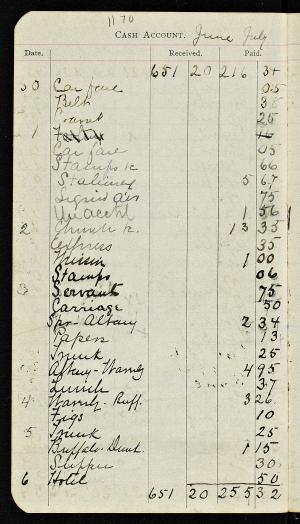 1170
CASH ACCOUNT. June July
Date. Received. Paid.
651 20 216 34
30 Car fare 05
Belt 38
25
1
Car fare 05
Stamps &c 66
Stationery 5 67
75
Unacctd 1 56
2 Church &c. 13 35
Express 35
1 00
Stamps 06
3 Servant 75
Carriage 50
Spr- Albany 2 34
Papers 13
Trunk 25
Albany- 4 95
Lunch 37
4 - Buff. 3 26
Figs 10
5 Trunk 25
Buffalo- 1 15
Supper 30
6 Hotel 50
651 20 255 32